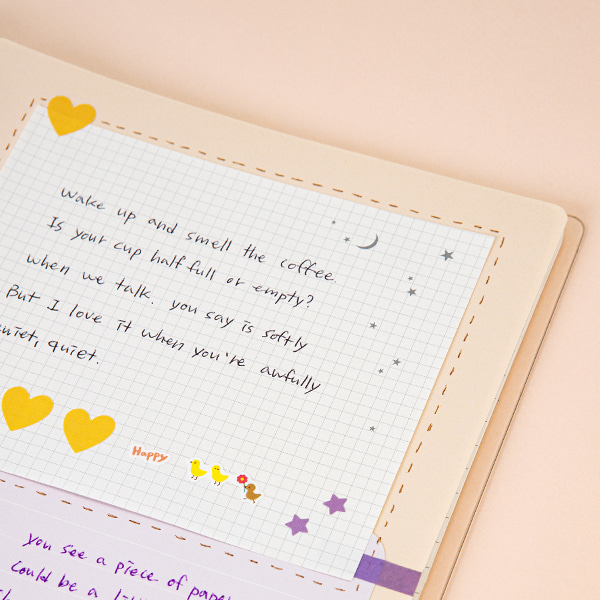 Wake up and smell the coffee
Is your cup half full or empty?
when we talk. you say is softly
But I love it when you're awfully
quiet, quiet.
Happy
you see a piece of
could be a